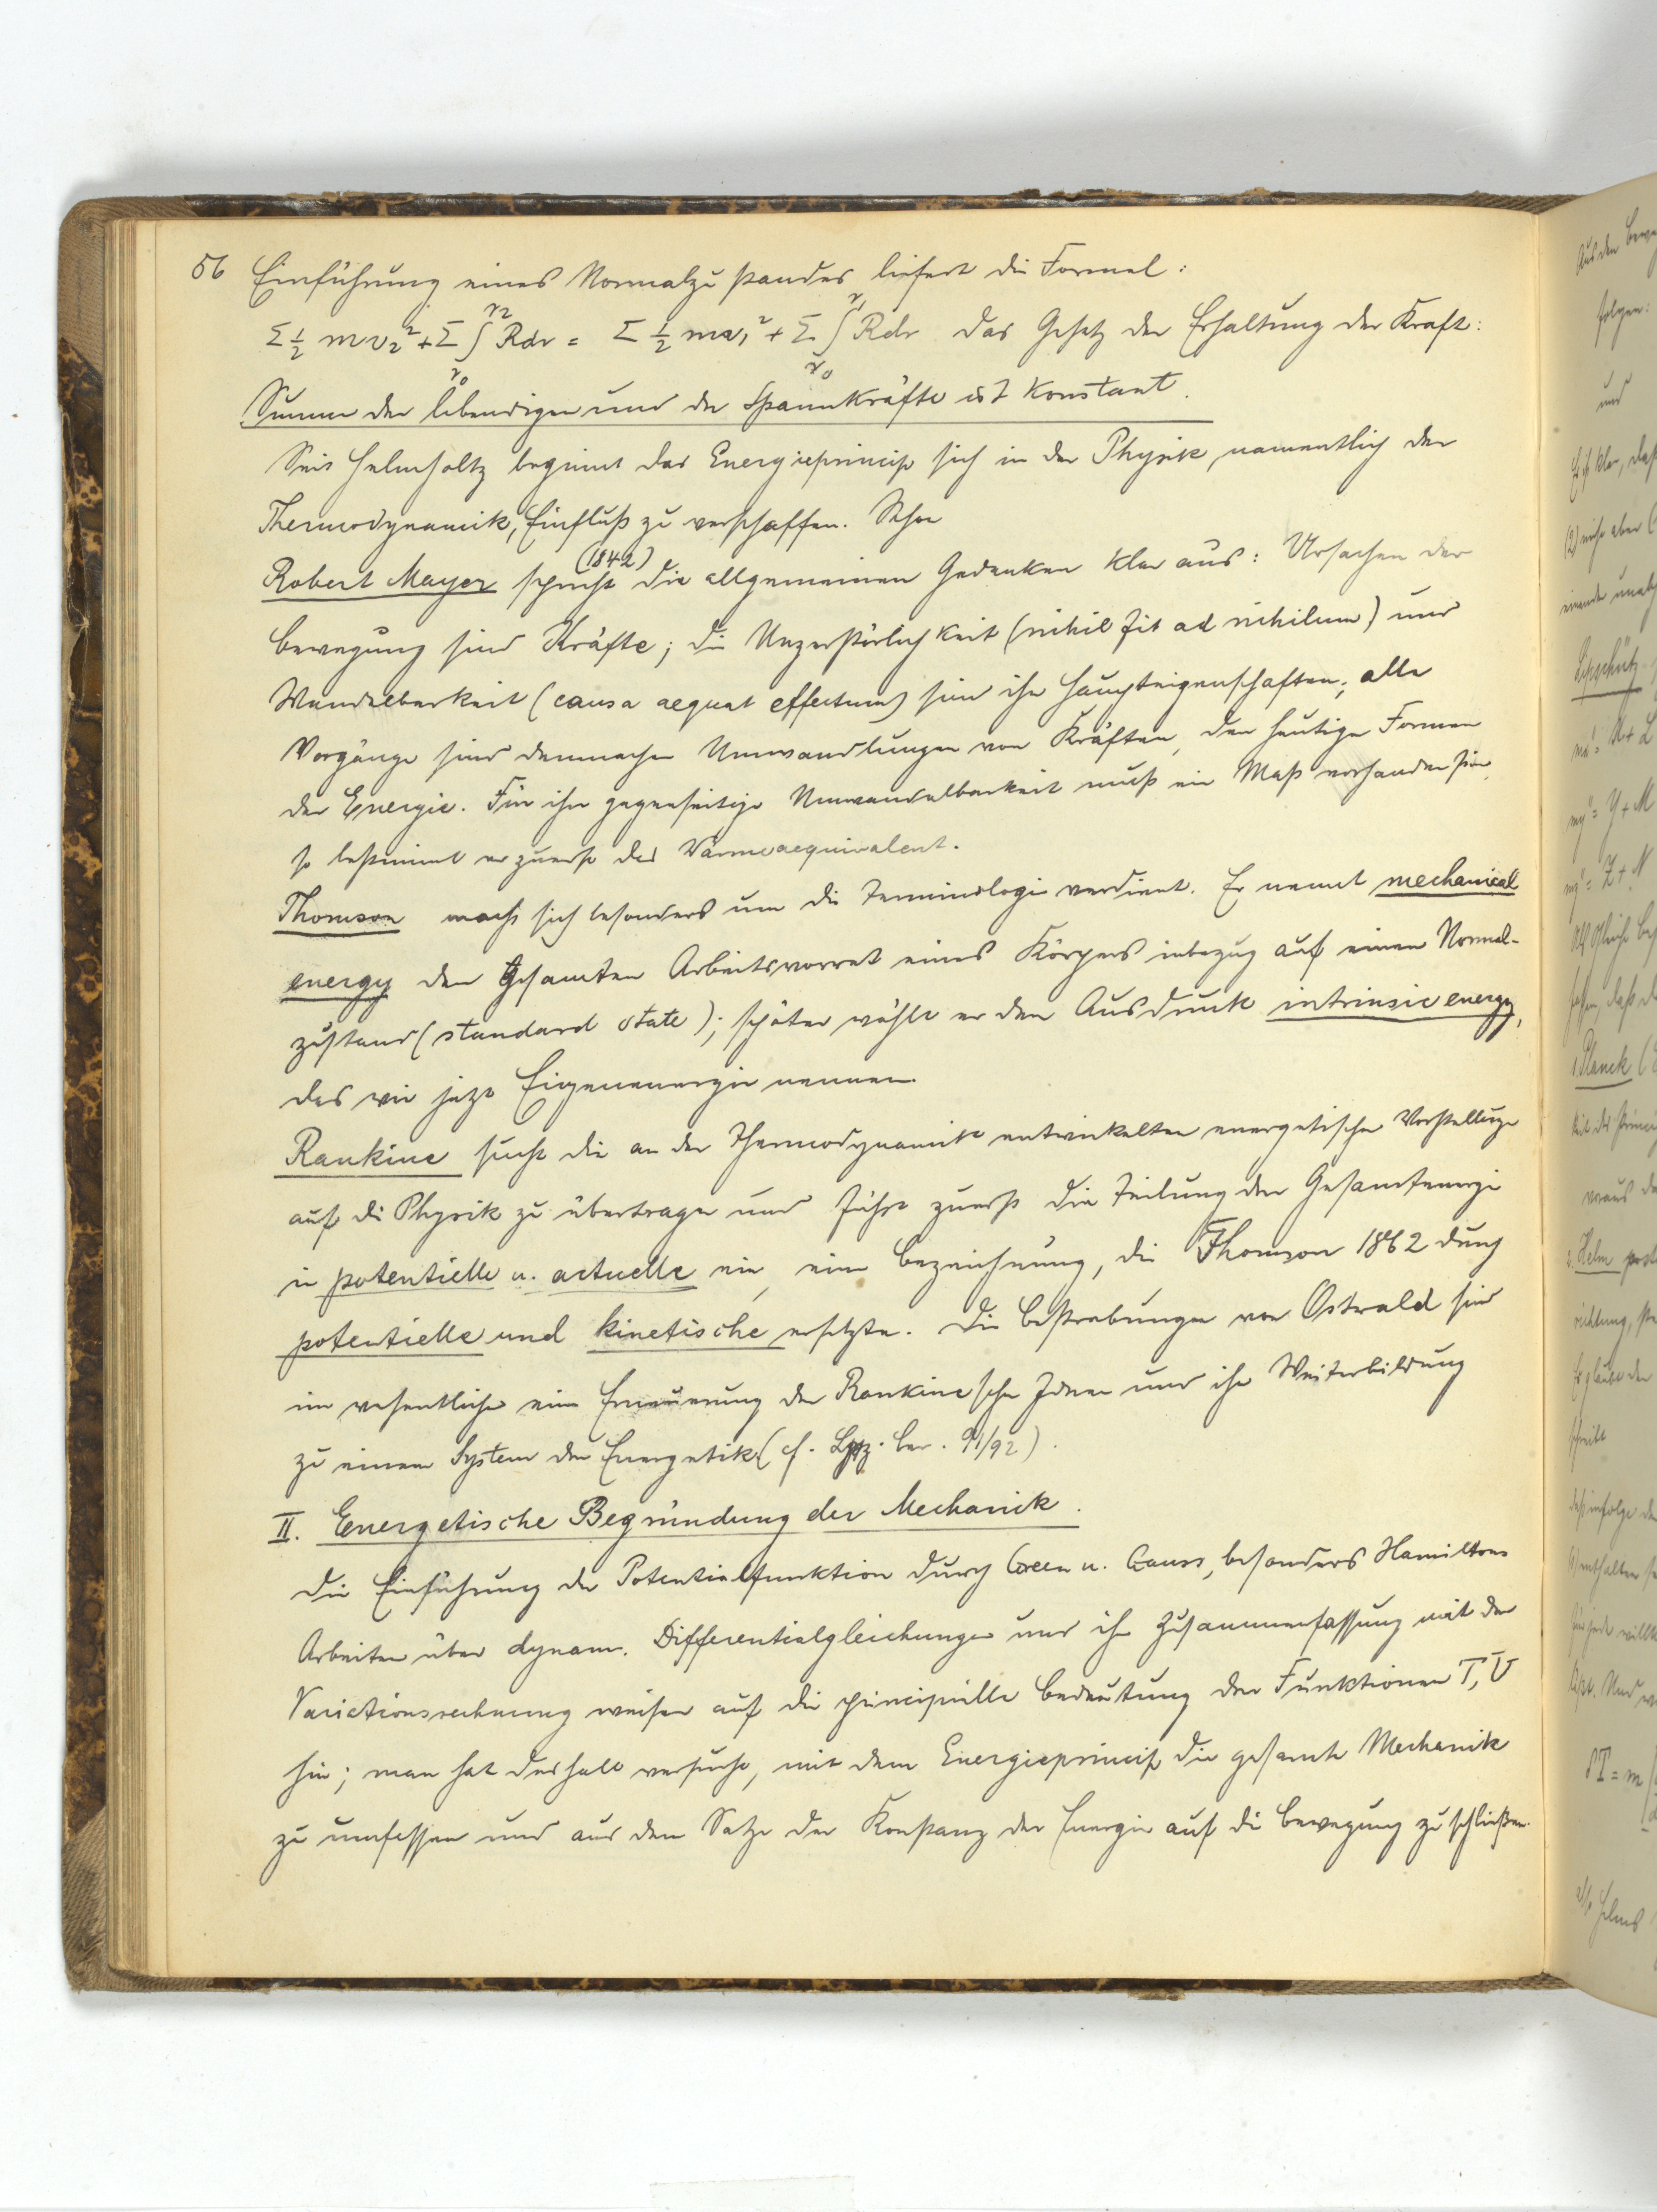 56 Einführung eines Normalzustandes liefert die Formel:
Σ ½ m v₂² + Σ ∫_{r₀}^{r₂} R dr = Σ ½ m v₁² + Σ ∫_{r₀}^{r₁} R dr das Gesetz der Erhaltung der Kraft:
Summe der lebendigen und der Spannkräfte ist konstant.
Seit Helmholtz beginnt das Energieprincip sich in der Physik, namentlich der
Thermodynamik, Einfluß zu verschaffen. Schon
Robert Mayer spricht (1842) die allgemeinen Gedanken klar aus: Ursachen der
Bewegung sind Kräfte; die Unzerstörlichkeit (nihil fit ad nihilum) und
Wandelbarkeit (causa aequat effectum) sind ihre Haupteigenschaften; alle
Vorgänge sind demnach Umwandlungen von Kräften, den heutigen Formen
der Energie. Für ihre gegenseitige Umwandelbarkeit muß ein Maß vorhanden sein,
so bestimmt er zuerst das Wärmeaequivalent.
Thomson macht sich besonders um die Terminologie verdient. Er nennt mechanical
energy den gesamten Arbeitsvorrat eines Körpers inbezug auf einen Normal-
zustand (standard state); später wählt er den Ausdruck intrinsic energy,
das wir jetzt Eigenenergie nennen.
Rankine sucht die an der Thermodynamik entwickelten energetischen Vorstellungen
auf die Physik zu übertragen und führt zuerst die Teilung der Gesamtenergie
in potentielle u. actuelle ein, eine Bezeichnung, die Thomson 1862 durch
potentielle und kinetische ersetzte. Die Bestrebungen von Ostwald sind
im wesentlichen eine Erneuerung der Rankineschen Ideen und ihre Weiterbildung
zu einem System der Energetik (cf. Lpz. Ber. 91/92).
II. Energetische Begründung der Mechanik.
Die Einführung der Potentialfunktion durch Green u. Gauss, besonders Hamiltons
Arbeiten über dynam. Differentialgleichungen und ihre Zusammenfassung mit der
Variationsrechnung weisen auf die principielle Bedeutung der Funktionen T, U
hin; man hat deshalb versucht, mit dem Energieprincip die gesamte Mechanik
zu umfassen und aus dem Satze der Konstanz der Energie auf die Bewegung zu schließen.
Aus den
folgen:
und
Planck
Helm